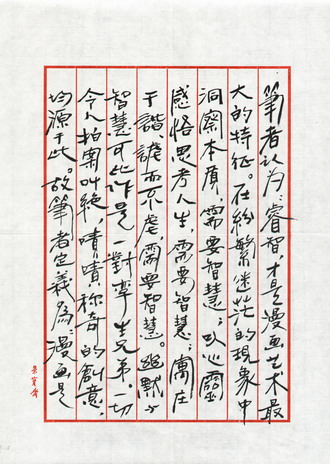 筆者认为:睿智,才是漫画艺术最
大的特征。在紛繁迷茫的現象中
洞察本质,需要智慧;以心靈
感悟思考人生,需要智慧;寓庄
于諧,謔而不虐,需要智慧。幽默与
智慧可比作是一對孪生兄弟。一切
令人拍案叫絶,嘖嘖称奇的創意,
均源于此。故筆者定義為:漫画是
榮寶齋